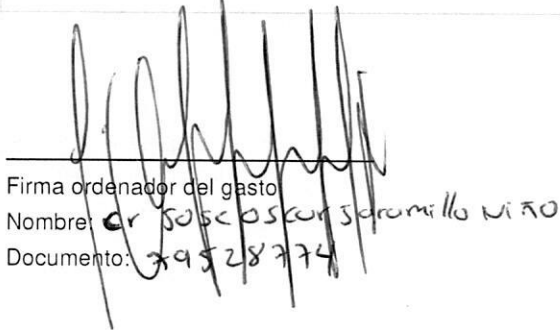 Firma ordenador del gasto
Nombre: Cr Jose Oscar Jaramillo Niño
Documento: 79528774